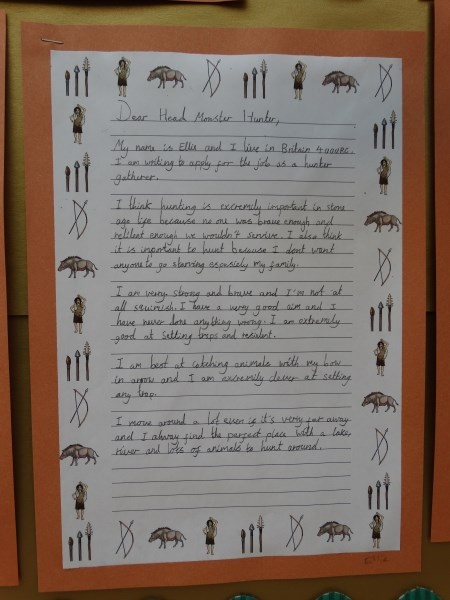 Dear Head Monster Hunter,
My name is Ellie and I live in Britain 4000BC.
I am writing to apply for the job as a hunter
gatherer.
I think hunting is extremely important in stone
age life because no one was brave enough and
relilent enough we wouldn't servive. I also think
it is inportant to hunt because I dont want
anyone to go starving espusialy my family.
I am very strong and brave and I'm not at
all squimish. I have a very good aim and I
have never done anything wrong. I am extremly
good at setting traps and resiliant.
I am best at catching animals with my bow
in arrow and I am extremely clever at setting
any trap.
I move around a lot even if it's verry far away
and I alway find the perfect place with a lake,
river and lots of animals to hunt around.
Ellie